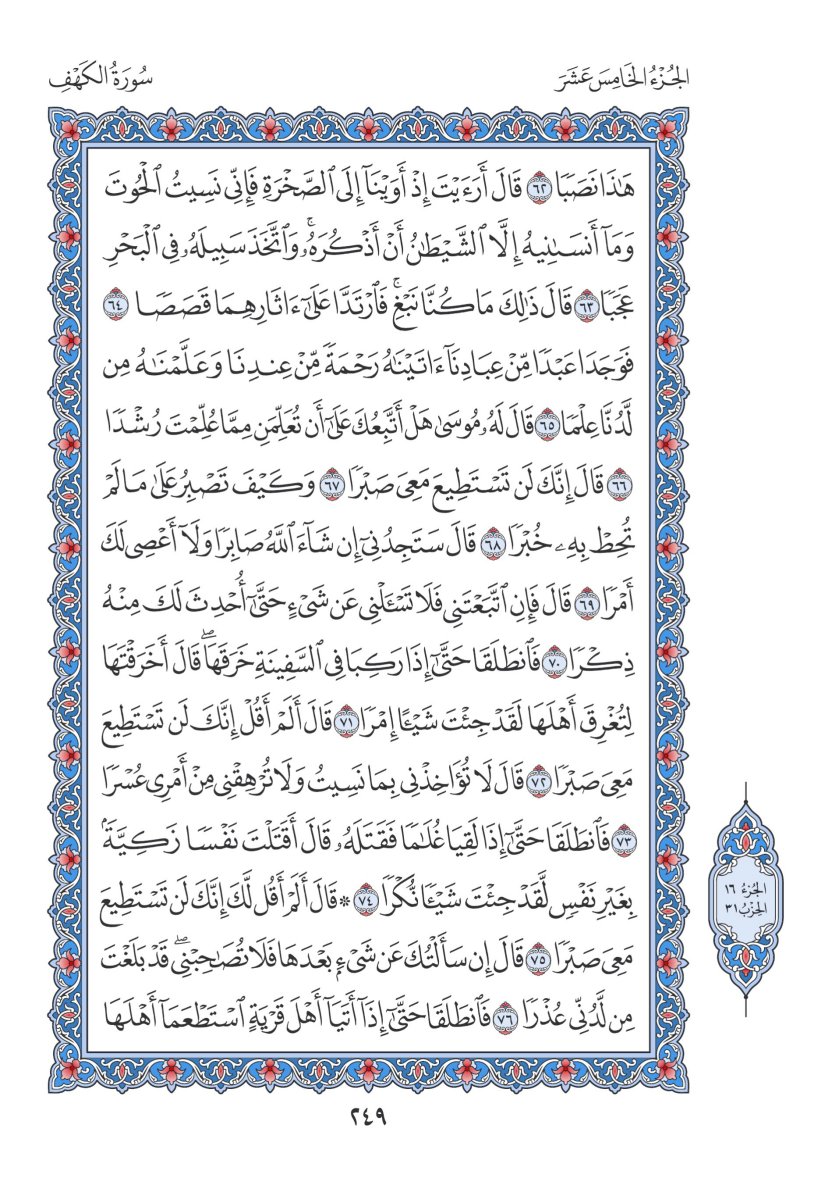 الجُزْءُ الخَامِسَ عَشَرَ
سُورَةُ الكَهْفِ
هَٰذَا نَصَبٗا ٦٢ قَالَ أَرَءَيۡتَ إِذۡ أَوَيۡنَآ إِلَى ٱلصَّخۡرَةِ فَإِنِّي نَسِيتُ ٱلۡحُوتَ
وَمَآ أَنسَىٰنِيهُ إِلَّا ٱلشَّيۡطَٰنُ أَنۡ أَذۡكُرَهُۥۚ وَٱتَّخَذَ سَبِيلَهُۥ فِي ٱلۡبَحۡرِ
عَجَبٗا ٦٣ قَالَ ذَٰلِكَ مَا كُنَّا نَبۡغِۚ فَٱرۡتَدَّا عَلَىٰٓ ءَاثَارِهِمَا قَصَصٗا ٦٤
فَوَجَدَا عَبۡدٗا مِّنۡ عِبَادِنَآ ءَاتَيۡنَٰهُ رَحۡمَةٗ مِّنۡ عِندِنَا وَعَلَّمۡنَٰهُ مِن
لَّدُنَّا عِلۡمٗا ٦٥ قَالَ لَهُۥ مُوسَىٰ هَلۡ أَتَّبِعُكَ عَلَىٰٓ أَن تُعَلِّمَنِ مِمَّا عُلِّمۡتَ رُشۡدٗا
٦٦ قَالَ إِنَّكَ لَن تَسۡتَطِيعَ مَعِيَ صَبۡرٗا ٦٧ وَكَيۡفَ تَصۡبِرُ عَلَىٰ مَا لَمۡ
تُحِطۡ بِهِۦ خُبۡرٗا ٦٨ قَالَ سَتَجِدُنِيٓ إِن شَآءَ ٱللَّهُ صَابِرٗا وَلَآ أَعۡصِي لَكَ
أَمۡرٗا ٦٩ قَالَ فَإِنِ ٱتَّبَعۡتَنِي فَلَا تَسۡـَٔلۡنِي عَن شَيۡءٍ حَتَّىٰٓ أُحۡدِثَ لَكَ مِنۡهُ
ذِكۡرٗا ٧٠ فَٱنطَلَقَا حَتَّىٰٓ إِذَا رَكِبَا فِي ٱلسَّفِينَةِ خَرَقَهَاۖ قَالَ أَخَرَقۡتَهَا
لِتُغۡرِقَ أَهۡلَهَا لَقَدۡ جِئۡتَ شَيۡـًٔا إِمۡرٗا ٧١ قَالَ أَلَمۡ أَقُلۡ إِنَّكَ لَن تَسۡتَطِيعَ
مَعِيَ صَبۡرٗا ٧٢ قَالَ لَا تُؤَاخِذۡنِي بِمَا نَسِيتُ وَلَا تُرۡهِقۡنِي مِنۡ أَمۡرِي عُسۡرٗا
٧٣ فَٱنطَلَقَا حَتَّىٰٓ إِذَا لَقِيَا غُلَٰمٗا فَقَتَلَهُۥ قَالَ أَقَتَلۡتَ نَفۡسٗا زَكِيَّةَۢ
بِغَيۡرِ نَفۡسٖ لَّقَدۡ جِئۡتَ شَيۡـٔٗا نُّكۡرٗا ٧٤ * قَالَ أَلَمۡ أَقُل لَّكَ إِنَّكَ لَن تَسۡتَطِيعَ
مَعِيَ صَبۡرٗا ٧٥ قَالَ إِن سَأَلۡتُكَ عَن شَيۡءِۭ بَعۡدَهَا فَلَا تُصَٰحِبۡنِيۖ قَدۡ بَلَغۡتَ
مِن لَّدُنِّي عُذۡرٗا ٧٦ فَٱنطَلَقَا حَتَّىٰٓ إِذَآ أَتَيَآ أَهۡلَ قَرۡيَةٍ ٱسۡتَطۡعَمَآ أَهۡلَهَا
الجُزءُ ١٦
الحِزْبُ ٣١
٢٤٩